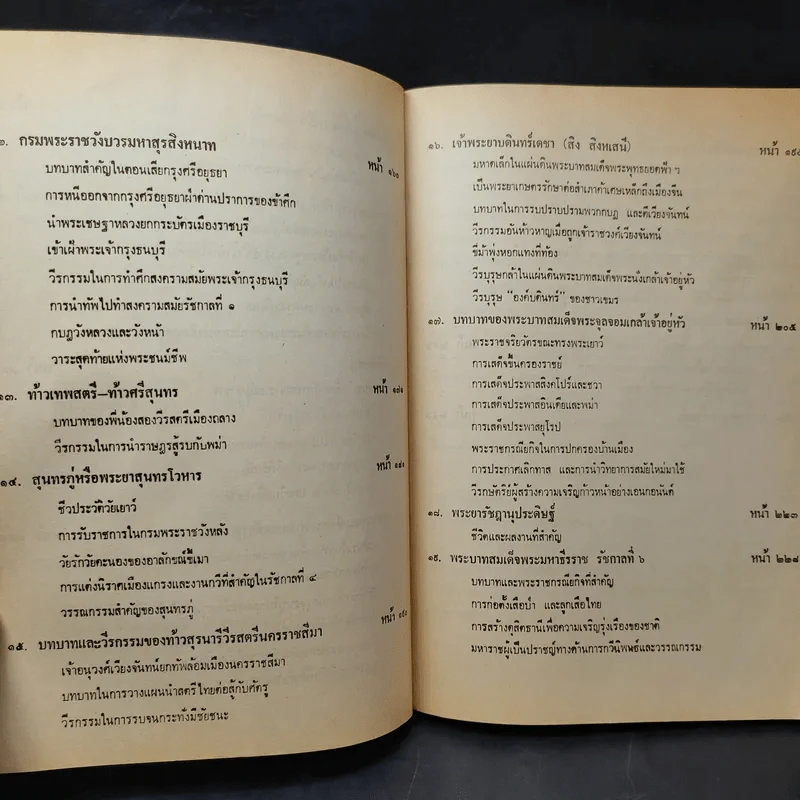 ๒. กรมพระราชวังบวรมหาสุรสิงหนาท
หน้า ๑๖๐
บทบาทสำคัญในตอนเสียกรุงศรีอยุธยา
การหนีออกจากกรุงศรีอยุธยาฝ่าด่านปราการของข้าศึก
นำพระเชษฐาหลวงยกกระบัตรเมืองราชบุรี
เข้าเฝ้าพระเจ้ากรุงธนบุรี
วีรกรรมในการทำศึกสงครามสมัยพระเจ้ากรุงธนบุรี
การนำทัพไปทำสงครามสมัยรัชกาลที่ ๑
กบฎวังหลวงและวังหน้า
วาระสุดท้ายแห่งพระชนม์ชีพ
๑๓. ท้าวเทพสตรี-ท้าวศรีสุนทร
หน้า ๑๗๑
บทบาทของพี่น้องสองวีรสตรีเมืองถลาง
วีรกรรมในการนำราษฎรสู้รบกับพม่า
๑๔. สุนทรภู่หรือพระยาสุนทรโวหาร
หน้า ๑๘๐
ชีวประวัติวัยเยาว์
การรับราชการในกรมพระราชวังหลัง
วัยรักวัยคะนองของอาลักษณ์ขี้เมา
การแต่งนิราศเมืองแกรงและงานกวีที่สำคัญในรัชกาลที่ ๔
วรรณกรรมสำคัญของสุนทรภู่
๑๕. บทบาทและวีรกรรมของท้าวสุรนารีวีรสตรีนครราชสีมา
หน้า ๑๙๐
เจ้าอนุวงศ์เวียงจันทน์ยกทัพล้อมเมืองนครราชสีมา
บทบาทในการวางแผนนำสตรีไทยต่อสู้กับศัตรู
วีรกรรมในการรบจนกระทั่งมีชัยชนะ
๑๖. เจ้าพระยาบดินทร์เดชา (สิง สิงหเสนี)
หน้า ๑๙๕
มหาดเล็กในแผ่นดินพระบาทสมเด็จพระพุทธยอดฟ้า ฯ
เป็นพระยาเกษตรรักษาต่อสำเภาค้าเศษเหล็กถึงเมืองจีน
บทบาทในการรบปราบปรามพวกกบฎ และตีเวียงจันทน์
วีรกรรมอันห้าวหาญเมื่อถูกเจ้าราชวงค์เวียงจันทน์
ขี่ม้าพุ่งหอกแทงที่ท้อง
วีรบุรุษกล้าในแผ่นดินพระบาทสมเด็จพระนั่งเกล้าเจ้าอยู่หัว
วีรบุรุษ "องค์บดินทร์" ของชาวเขมร
๑๗. บทบาทของพระบาทสมเด็จพระจุลจอมเกล้าเจ้าอยู่หัว
หน้า ๒๐๕
พระราชจริยวัตรขณะทรงพระเยาว์
การเสด็จขึ้นครองราชย์
การเสด็จประพาสสิงคโปร์และชวา
การเสด็จประพาสอินเดียและพม่า
การเสด็จประพาสยุโรป
พระราชกรณียกิจในการปกครองบ้านเมือง
การประกาศเลิกทาส และการนำวิทยาการสมัยใหม่มาใช้
วีรกษัตริย์ผู้สร้างความเจริญก้าวหน้าอย่างเอนกอนันต์
๑๘. พระยารัษฎานุประดิษฐ์
หน้า ๒๒๓
ชีวิตและผลงานที่สำคัญ
๑๙. พระบาทสมเด็จพระมหาธีรราช รัชกาลที่ ๖
หน้า ๒๒๘
บทบาทและพระราชกรณียกิจที่สำคัญ
การก่อตั้งเสือป่า และลูกเสือไทย
การสร้างดุสิตธานีเพื่อความเจริญรุ่งเรืองของชาติ
มหาราชผู้เป็นปราชญ์ทางด้านการกวีนิพนธ์และวรรณกรรม